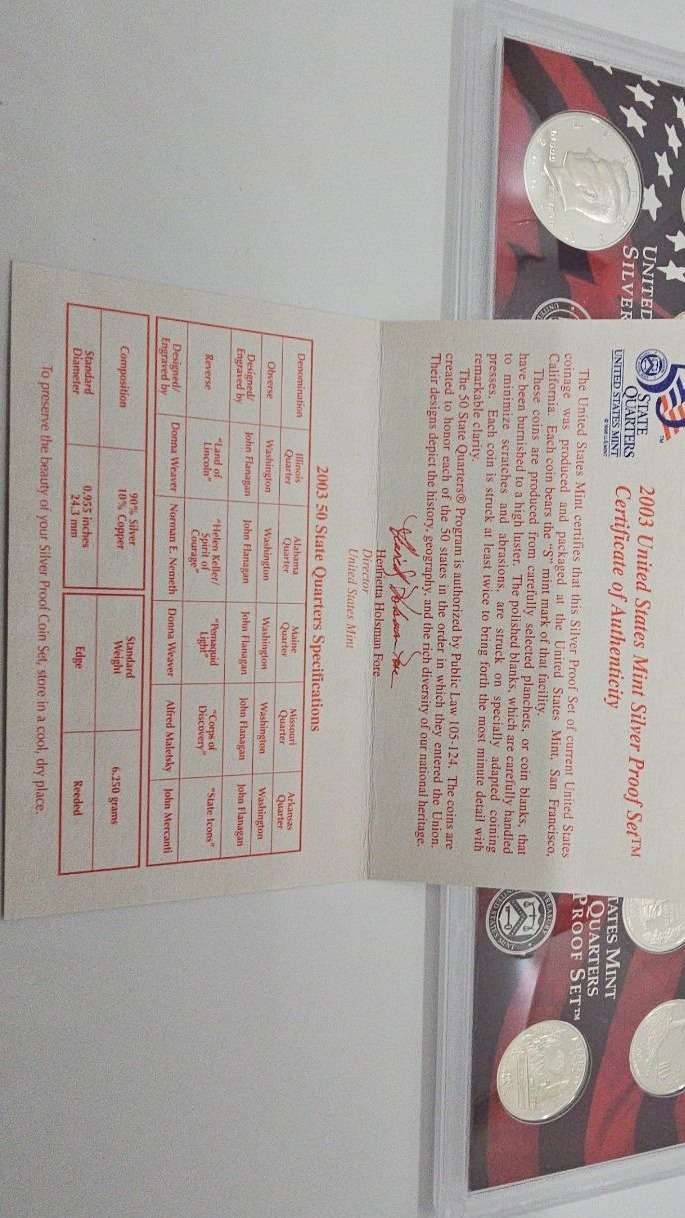 UNITED
SILVER
STATE
QUARTERS
UNITED STATES MINT
2003 United States Mint Silver Proof Set™
Certificate of Authenticity
The United States Mint certifies that this Silver Proof Set of current United States
coinage was produced and packaged at the United States Mint, San Francisco,
California. Each coin bears the "S" mint mark of that facility.
These coins are produced from carefully selected planchets, or coin blanks, that
have been burnished to a high luster. The polished blanks, which are carefully handled
to minimize scratches and abrasions, are struck on specially adapted coining
presses. Each coin is struck at least twice to bring forth the most minute detail with
remarkable clarity.
The 50 State Quarters® Program is authorized by Public Law 105-124. The coins are
created to honor each of the 50 states in the order in which they entered the Union.
Their designs depict the history, geography, and the rich diversity of our national heritage.
Henrietta Holsman Fore
Director
United States Mint
2003 50 State Quarters Specifications
Denomination Illinois Quarter Alabama Quarter Maine Quarter Missouri Quarter Arkansas Quarter
Obverse Washington Washington Washington Washington Washington
Designed/ Engraved by John Flanagan John Flanagan John Flanagan John Flanagan John Flanagan
Reverse "Land of Lincoln" "Helen Keller/ Spirit of Courage" "Pemaquid Light" "Corps of Discovery" "State Icons"
Designed/ Engraved by Donna Weaver Norman E. Nemeth Donna Weaver Alfred Maletsky John Mercanti
Composition 90% Silver 10% Copper Standard Weight 6.250 grams
Standard Diameter 0.955 inches 24.3 mm Edge Reeded
To preserve the beauty of your Silver Proof Coin Set, store in a cool, dry place.
TATES MINT
QUARTERS
PROOF SET™